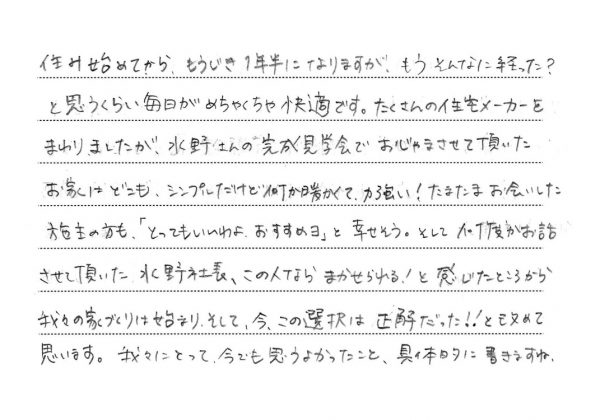 住み始めてから、もうじき1年半になりますが、もうそんなに経った?
と思うくらい毎日がめちゃくちゃ快適です。たくさんの住宅メーカーを
まわりましたが、水野さんの完成見学会でおじゃまさせて頂いた
お家はどこも、シンプルだけど何か暖かくて、力強い!たまたまお会いした
施主の方も、「とってもいいわよ、おすすめヨ」と幸せそう。そして何度かお話
させて頂いた水野社長、この人ならまかせられる!と感じたところから
我々の家づくりは始まり、そして、今、この選択は正解だった!!と改めて
思います。我々にとって、今でも思うよかったこと、具体的に書きますね。